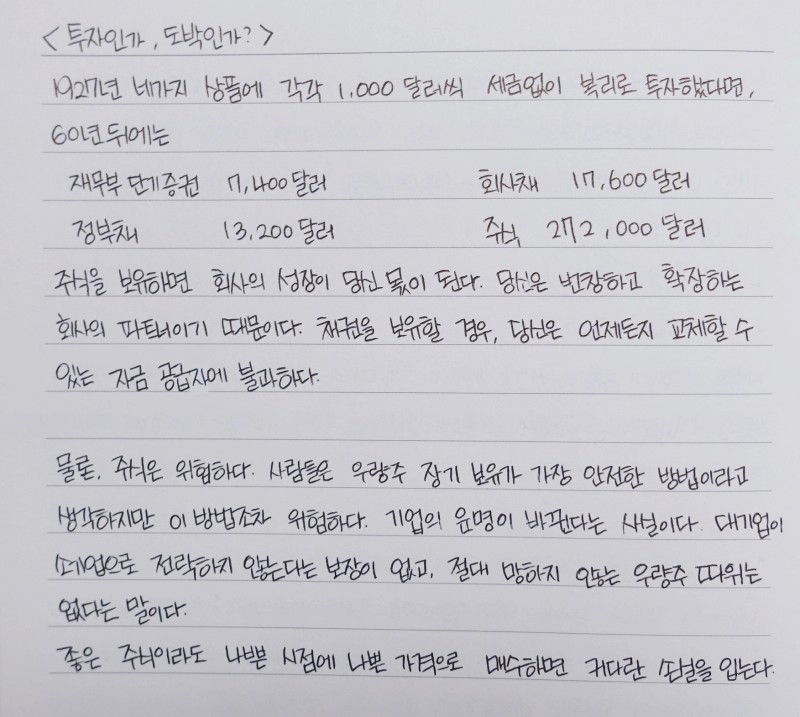 <투자인가, 도박인가?>
1927년 네가지 상품에 각각 1,000 달러씩 세금없이 복리로 투자했다면,
60년 뒤에는
재무부 단기증권 7,400달러 회사채 17,600달러
정부채 13,200달러 주식 272,000달러
주식을 보유하면 회사의 성장이 당신 몫이 된다. 당신은 번창하고 확장하는
회사의 파트너이기 때문이다. 채권을 보유할 경우, 당신은 언제든지 교체할 수
있는 자금 공급자에 불과하다.
물론, 주식은 위험하다. 사람들은 우량주 장기 보유가 가장 안전한 방법이라고
생각하지만 이 방법조차 위험하다. 기업의 운명이 바뀐다는 사실이다. 대기업이
소기업으로 전락하지 않는다는 보장이 없고, 절대 망하지 않는 우량주 따위는
없다는 말이다.
좋은 주식이라도 나쁜 시점에 나쁜 가격으로 매수하면 커다란 손실을 입는다.